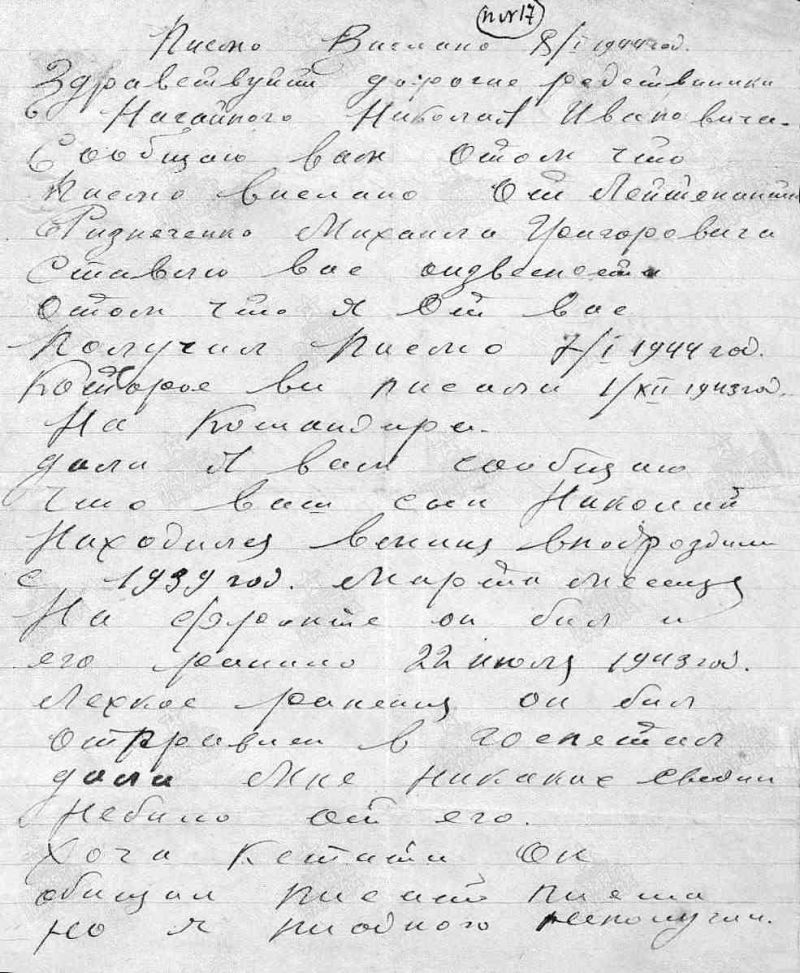 п №17
Писмо Вислано 8/I 1944 год.
Здравствуйти дорогие родствиники
Нагайного Николая Ивановича.
Сообщаю вам отом что
Писмо вислано От Лейтенанта
Ризниченко Михаила Григоровича
Ставлю вас
отом что я От вас
Получил Писмо 7/I 1944 год.
Которое ви писали 1/XII 1943 год.
На Командира.
дали я вам сообщаю
что ваш син Николай
Находился
с 1939 год. Марта Месяця
На фронте он бил и
его ранино 22 июля 1943 год.
Лехкое ранения он бил
отправлен в госпетал
дали Мне никаких
Небило от его.
Хоча Кстати Он
обищал писат писма
но я ниодного неполучил.